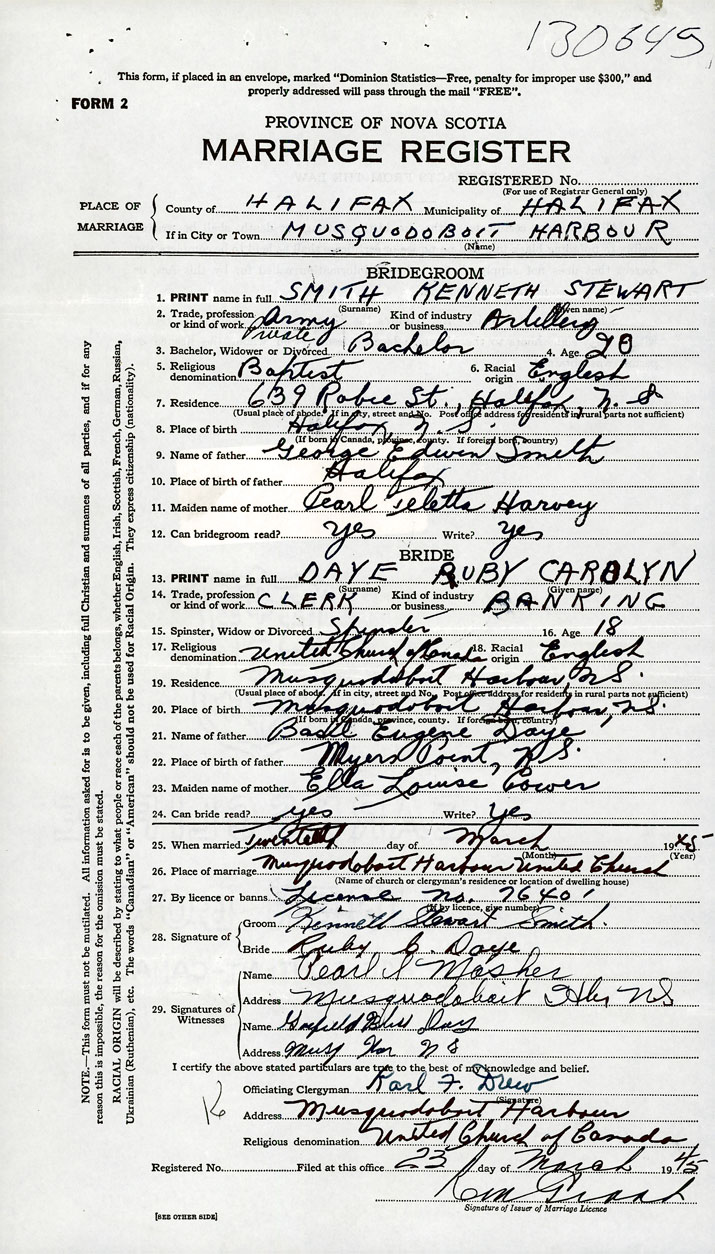 130645
This form, if placed in an envelope, marked "Dominion Statistics—Free, penalty for improper use $300," and
properly addressed will pass through the mail "FREE".
FORM 2
PROVINCE OF NOVA SCOTIA
MARRIAGE REGISTER
REGISTERED No.
(For use of Registrar General only)
PLACE OF MARRIAGE
County of HALIFAX Municipality of HALIFAX
If in City or Town MUSQUODOBOIT HARBOUR
(Name)
BRIDEGROOM
1. PRINT name in full SMITH KENNETH STEWART
(Surname) (Given name)
2. Trade, profession or kind of work Army Private Kind of industry or business Artillery
3. Bachelor, Widower or Divorced Bachelor 4. Age 20
5. Religious denomination Baptist 6. Racial origin English
7. Residence 639 Robie St., Halifax, N. S
(Usual place of abode. If in city, street and No. Post office address for residents in rural parts not sufficient)
8. Place of birth Halifax, N. S.
(If born in Canada, province, county. If foreign born, country)
9. Name of father George Edwin Smith
10. Place of birth of father Halifax
11. Maiden name of mother Pearl Teletta Harvey
12. Can bridegroom read? yes Write? yes
BRIDE
13. PRINT name in full DAYE RUBY CAROLYN
(Surname) (Given name)
14. Trade, profession or kind of work CLERK Kind of industry or business BANKING
15. Spinster, Widow or Divorced Spinster 16. Age 18
17. Religious denomination United Church of Canada 18. Racial origin English
19. Residence Musquodoboit Harbour, N.S.
(Usual place of abode. If in city, street and No. Post office address for residents in rural parts not sufficient)
20. Place of birth Musquodoboit Harbour, N.S.
(If born in Canada, province, county. If foreign born, country)
21. Name of father Basil Eugene Daye
22. Place of birth of father Myers Point, N.S.
23. Maiden name of mother Ella Louise Power
24. Can bride read? yes Write? yes
25. When married Twentieth day of March 1945
(Month) (Year)
26. Place of marriage Musquodoboit Harbour United Church
(Name of church or clergyman's residence or location of dwelling house)
27. By licence or banns License no. 76401
(If by licence, give number)
28. Signature of
Groom Kenneth Stewart Smith.
Bride Ruby C. Daye
29. Signatures of Witnesses
Name Pearl I Mosher
Address Musquodoboit Hbr NS
Name Day
Address Musq Har N S
I certify the above stated particulars are true to the best of my knowledge and belief.
Officiating Clergyman Karl F. Drew
(Signature)
Address Musquodoboit Harbour
Religious denomination United Church of Canada
Registered No. Filed at this office 23 day of March 1945
Signature of Issuer of Marriage Licence
[SEE OTHER SIDE]
NOTE.—This form must not be mutilated. All information asked for is to be given, including full Christian and surnames of all parties, and if for any
reason this is impossible, the reason for the omission must be stated.
RACIAL ORIGIN will be described by stating to what people or race each of the parents belongs, whether English, Irish, Scottish, French, German, Russian,
Ukrainian (Ruthenian), etc. The words "Canadian" or "American" should not be used for Racial Origin. They express citizenship (nationality).